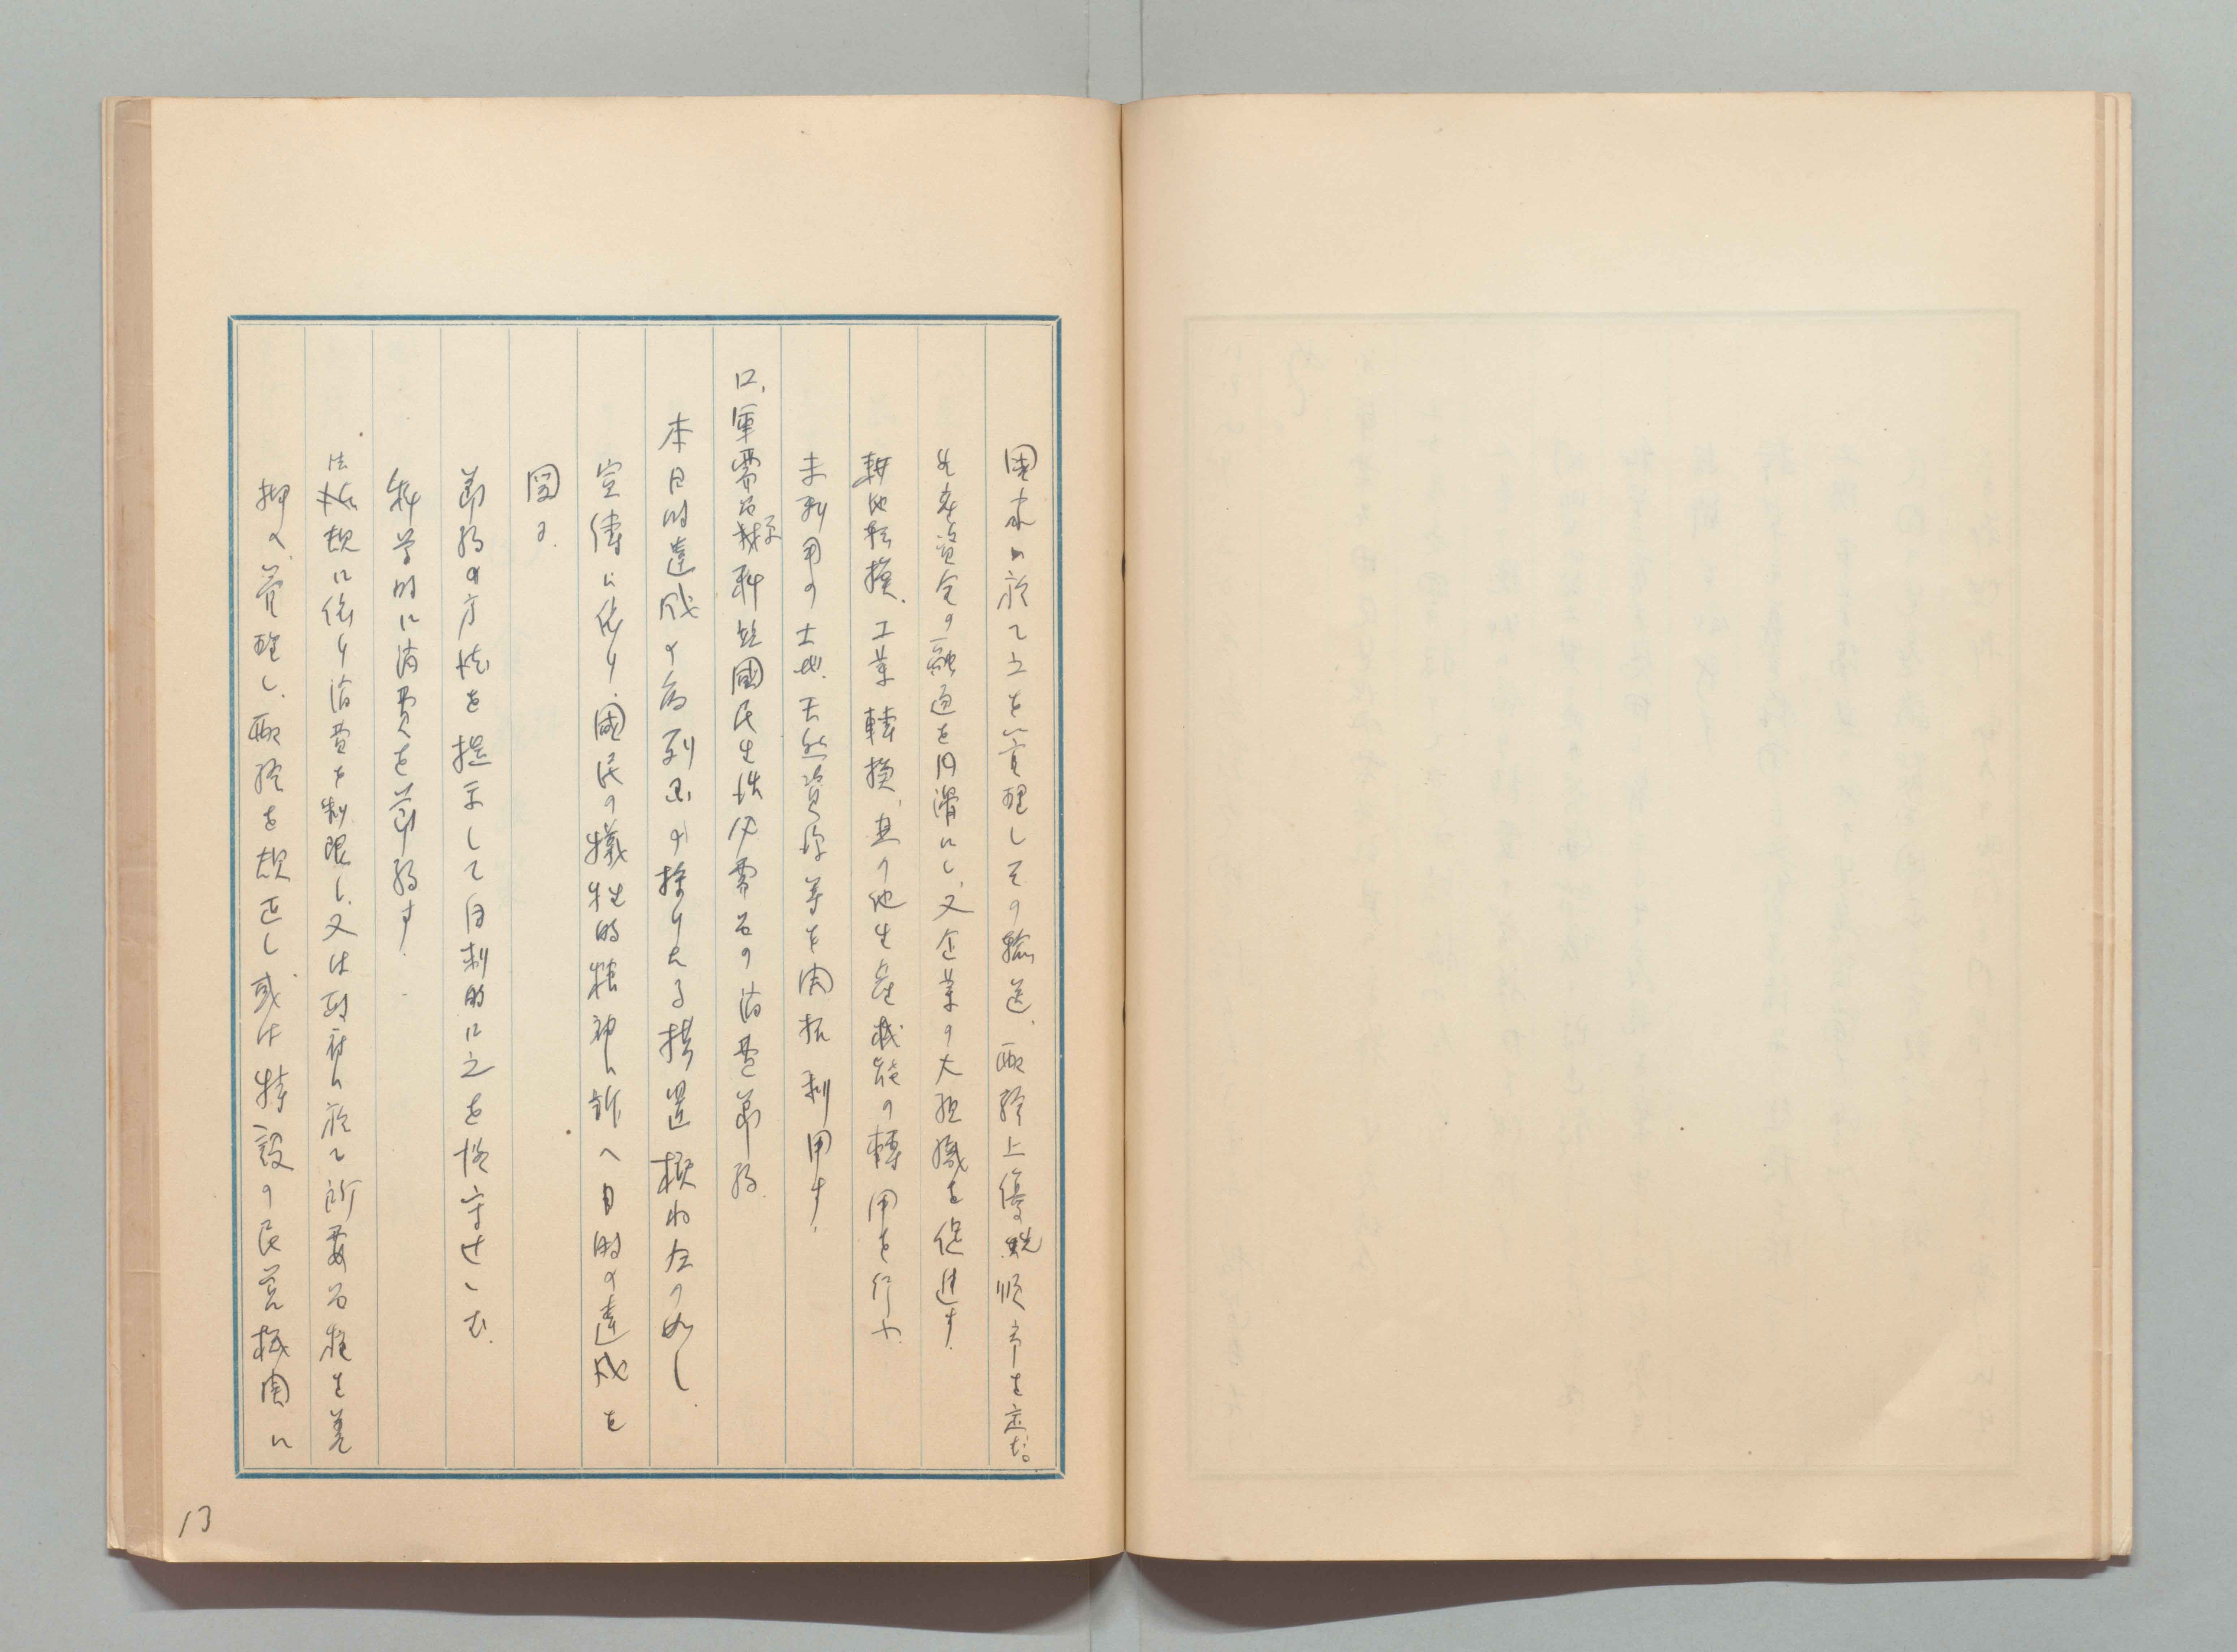 国家に於て之を管理しその輸送、配給上優先順序を定む。
生産資金の融通を円滑にし、又企業の大組織を促進す。
耕地転換、工業轉換、其の他生産機能の轉用を行ふ。
未利用の土地、天然資源等を開拓利用す。
ロ、軍需品原料並國民生活必需品の消費節約
本目的達成の為列国の採りたる措置概ね左の如し.
宣傳に依り、國民の犠牲的精神に訴へ目的の達成を
図る.
節約の方法を提示して自制的に之を恪守せしむ.
科学的に消費を節約す.
法規に依り消費を制限し、又は政府に於て所要品種を差
押へ、管理し、配給を規正し、或は特設の民營機関に
13